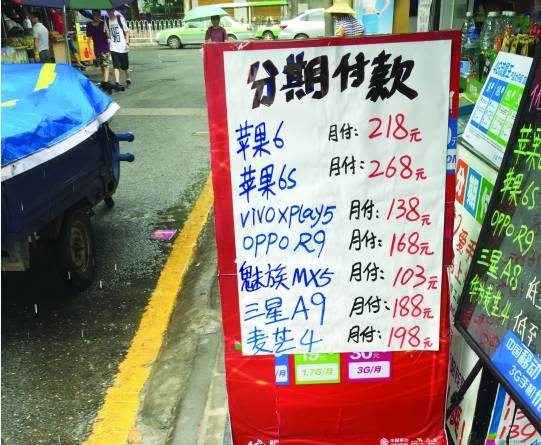 分期付款
苹果6 月付: 218元
苹果6S 月付: 268元
vivoxplay5 月付: 138元
OPPO R9 月付: 168元
魅族MX5 月付: 103元
三星A9 月付: 188元
麦芒4 月付: 198元
/月
1.7G/月
30元
3G/月
中国移动
分期
苹果6S
OPPO R9
三星A8
麦芒4 低至
中国移动
3G手机